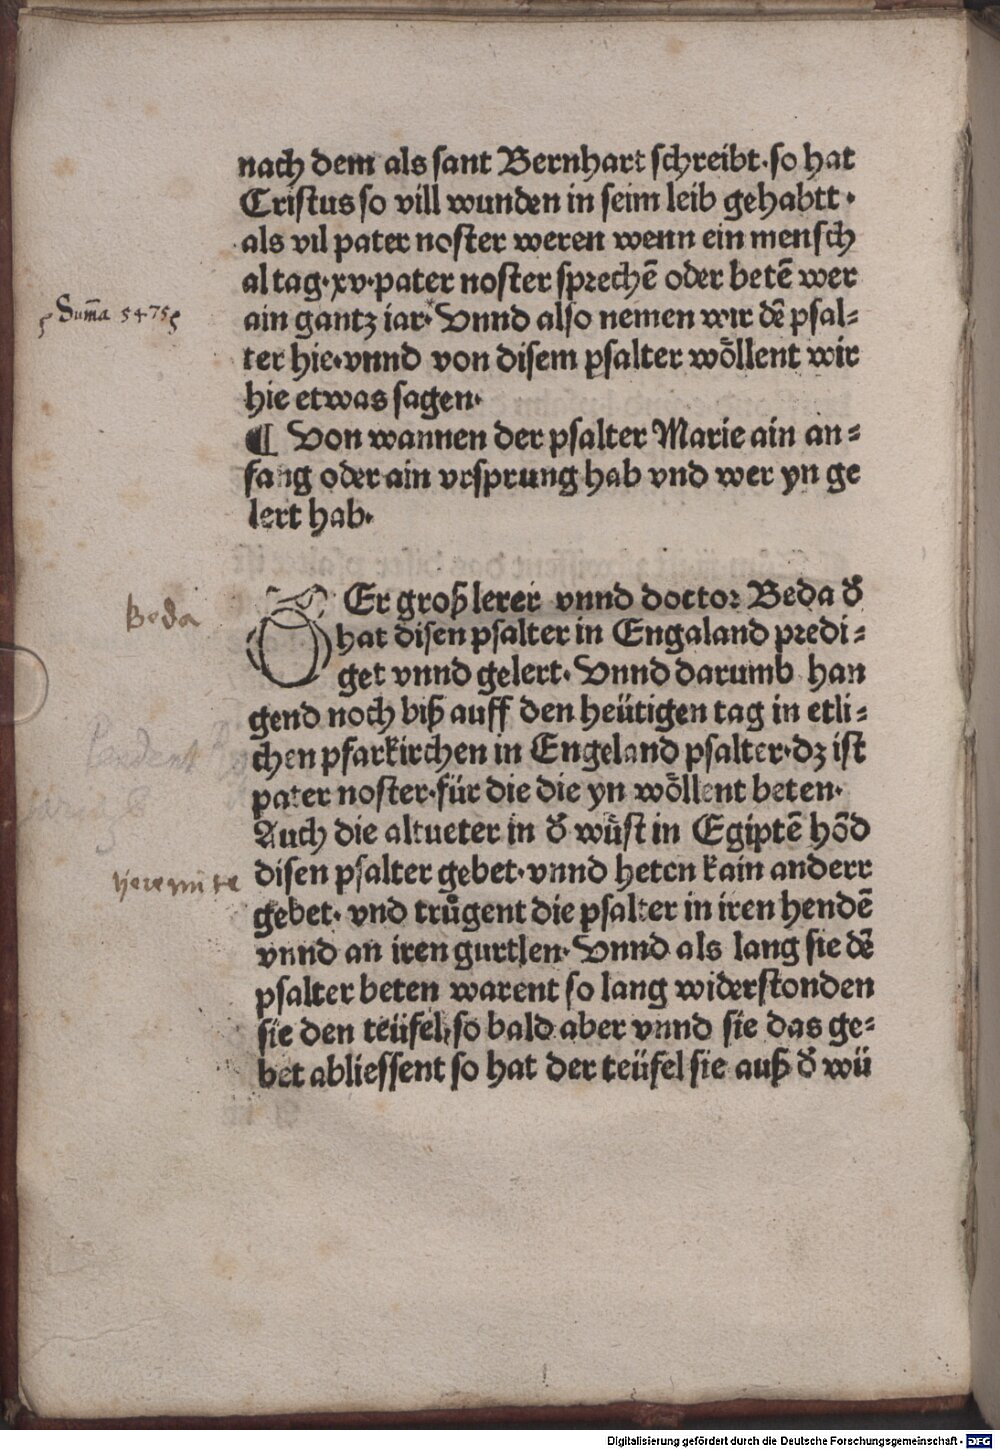 nach dem als sant Bernhart schreibt·so hat
Cristus so vill wunden in seim leib gehabtt·
als vil pater noster weren wenn ein mensch
al tag·xv·pater noster sprechē oder betē wer
Sum̄a 5475
ain gantz iar·Vnnd also nemen wir dē psal⸗
ter hie·vnnd von disem psalter wöllent wir
hie etwas sagen·
¶ Von wannen der psalter Marie ain an⸗
fang oder ain vrsprung hab vnd wer yn ge
lert hab·
Beda
DEr groß lerer vnnd doctor Beda d̄
hat disen psalter in Engaland predi⸗
get vnnd gelert·Vnnd darumb han
gend noch biß auff den heütigen tag in etli⸗
chen pfarkirchen in Engeland psalter·dz ist
pater noster·für die die yn wöllent beten·
Auch die altueter in d̄ wůst in Egiptē hōd
heremite
disen psalter gebet·vnnd heten kain anderr
gebet·vnd trůgent die psalter in iren hendē
vnnd an iren gurtlen·Vnnd als lang sie dē
psalter beten warent so lang widerstonden
sie den teüfel,so bald aber vnnd sie das ge⸗
bet abliessent so hat der teüfel sie auß d̄ wü
Digitalisierung gefördert durch die Deutsche Forschungsgemeinschaft - DFG